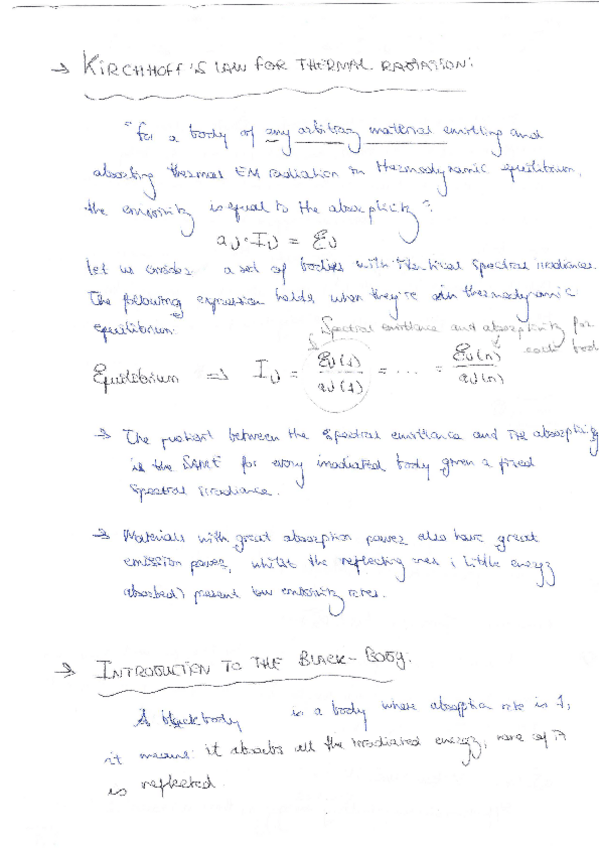 → KIRCHHOFF'S LAW FOR THERMAL RADIATION:
"For a body of any arbitrary material emitting and
absorbing thermal EM radiation in thermodynamic equilibrium,
the emissivity is equal to the absorptivity"
aν · Iν = Eν
Let us consider a set of bodies with identical spectral irradiances.
The following expression holds when they're in thermodynamic
equilibrium.
Spectral emittance and absorptivity for
each body
Equilibrium ⇒ Iν = Eν(1)/aν(1) = ... = Eν(n)/aν(n)
→ The quotient between the spectral emittance and the absorptivity
is the SAME for every irradiated body given a fixed
spectral irradiance.
→ Materials with great absorption power also have great
emission power, whilst the reflecting ones (little energy
absorbed) present low emissivity rates.
→ INTRODUCTION TO THE BLACK-BODY.
A black body is a body whose absorption rate is 1,
it means: it absorbs all the irradiated energy, none of it
is reflected.